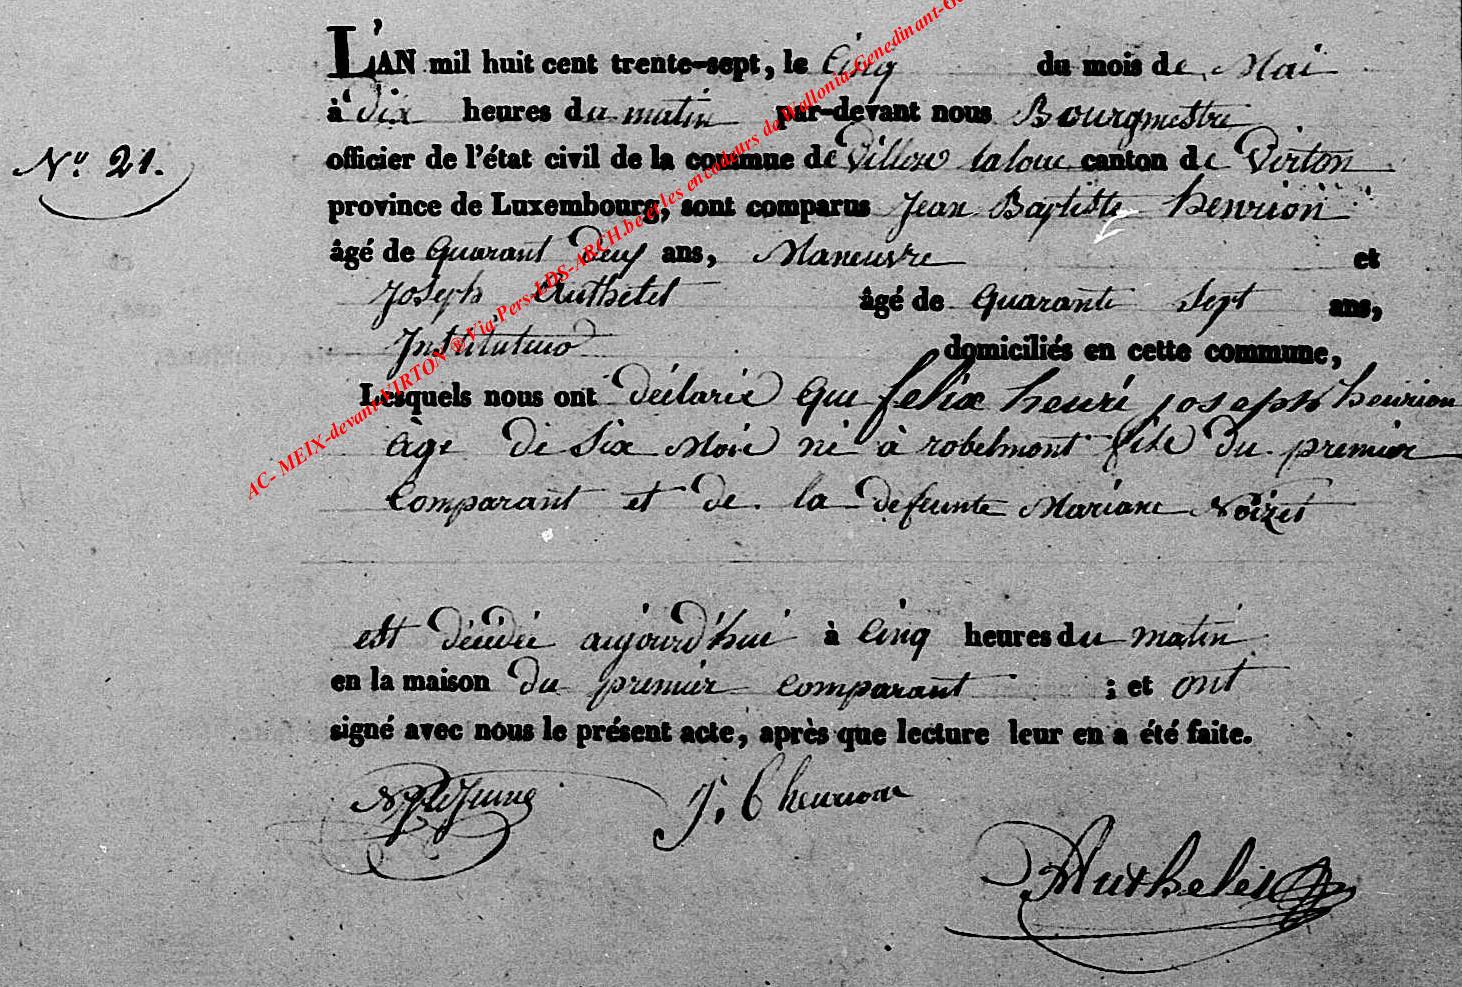 L'AN mil huit cent trente-sept, le Cinq du mois de Mai
à Dix heures du matin par-devant nous Bourgmestre
N° 21.
officier de l'état civil de la commune de Villers laloue canton de Virton
province de Luxembourg, sont comparus Jean Baptiste henrion
âgé de quarant deux ans, Maneuvre et
Joseph Authelet âgé de quarante Sept ans,
Instituteur domiciliés en cette commune,
Lesquels nous ont déclaré que felix henri joseph henrion
âgé de Six Mois né à robelmont fils du premier
Comparant et de la defunte Mariane Noizet
est décédé aujourd'hui à Cinq heures du matin
en la maison du premier Comparant ; et ont
signé avec nous le présent acte, après que lecture leur en a été faite.
J. B henrion
Authelet
AC- MEIX-devant-VIRTON ® Via Pers-LDS-ARCH.be et les encodeurs de Wallonia-Genedinant-Ge